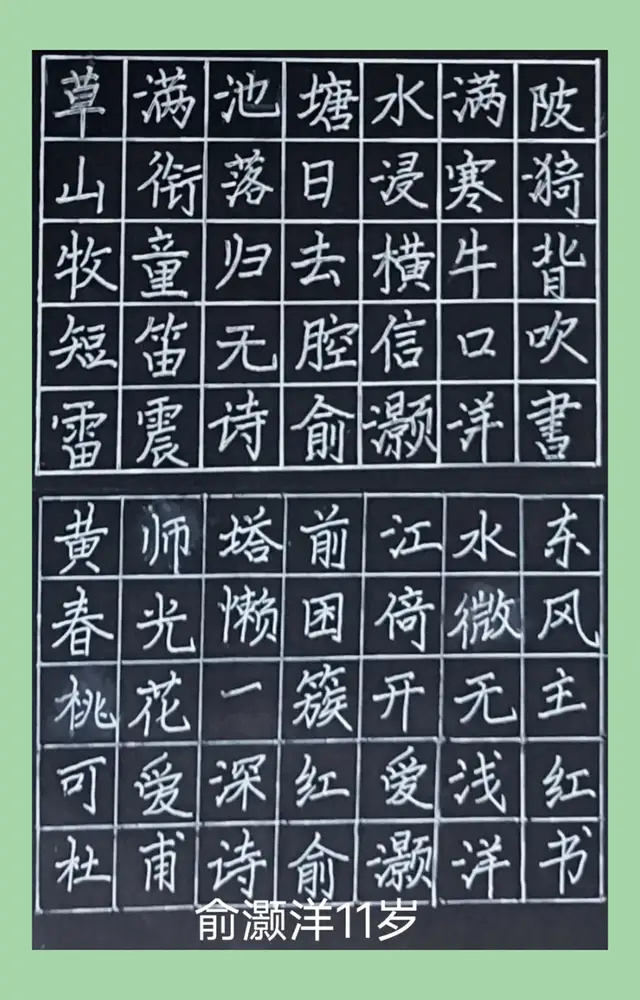 草满池塘水满陂
山衔落日浸寒漪
牧童归去横牛背
短笛无腔信口吹
雷震诗俞灏洋書
黄师塔前江水东
春光懒困倚微风
桃花一簇开无主
可爱深红爱浅红
杜甫诗俞灏洋书
俞灏洋11岁